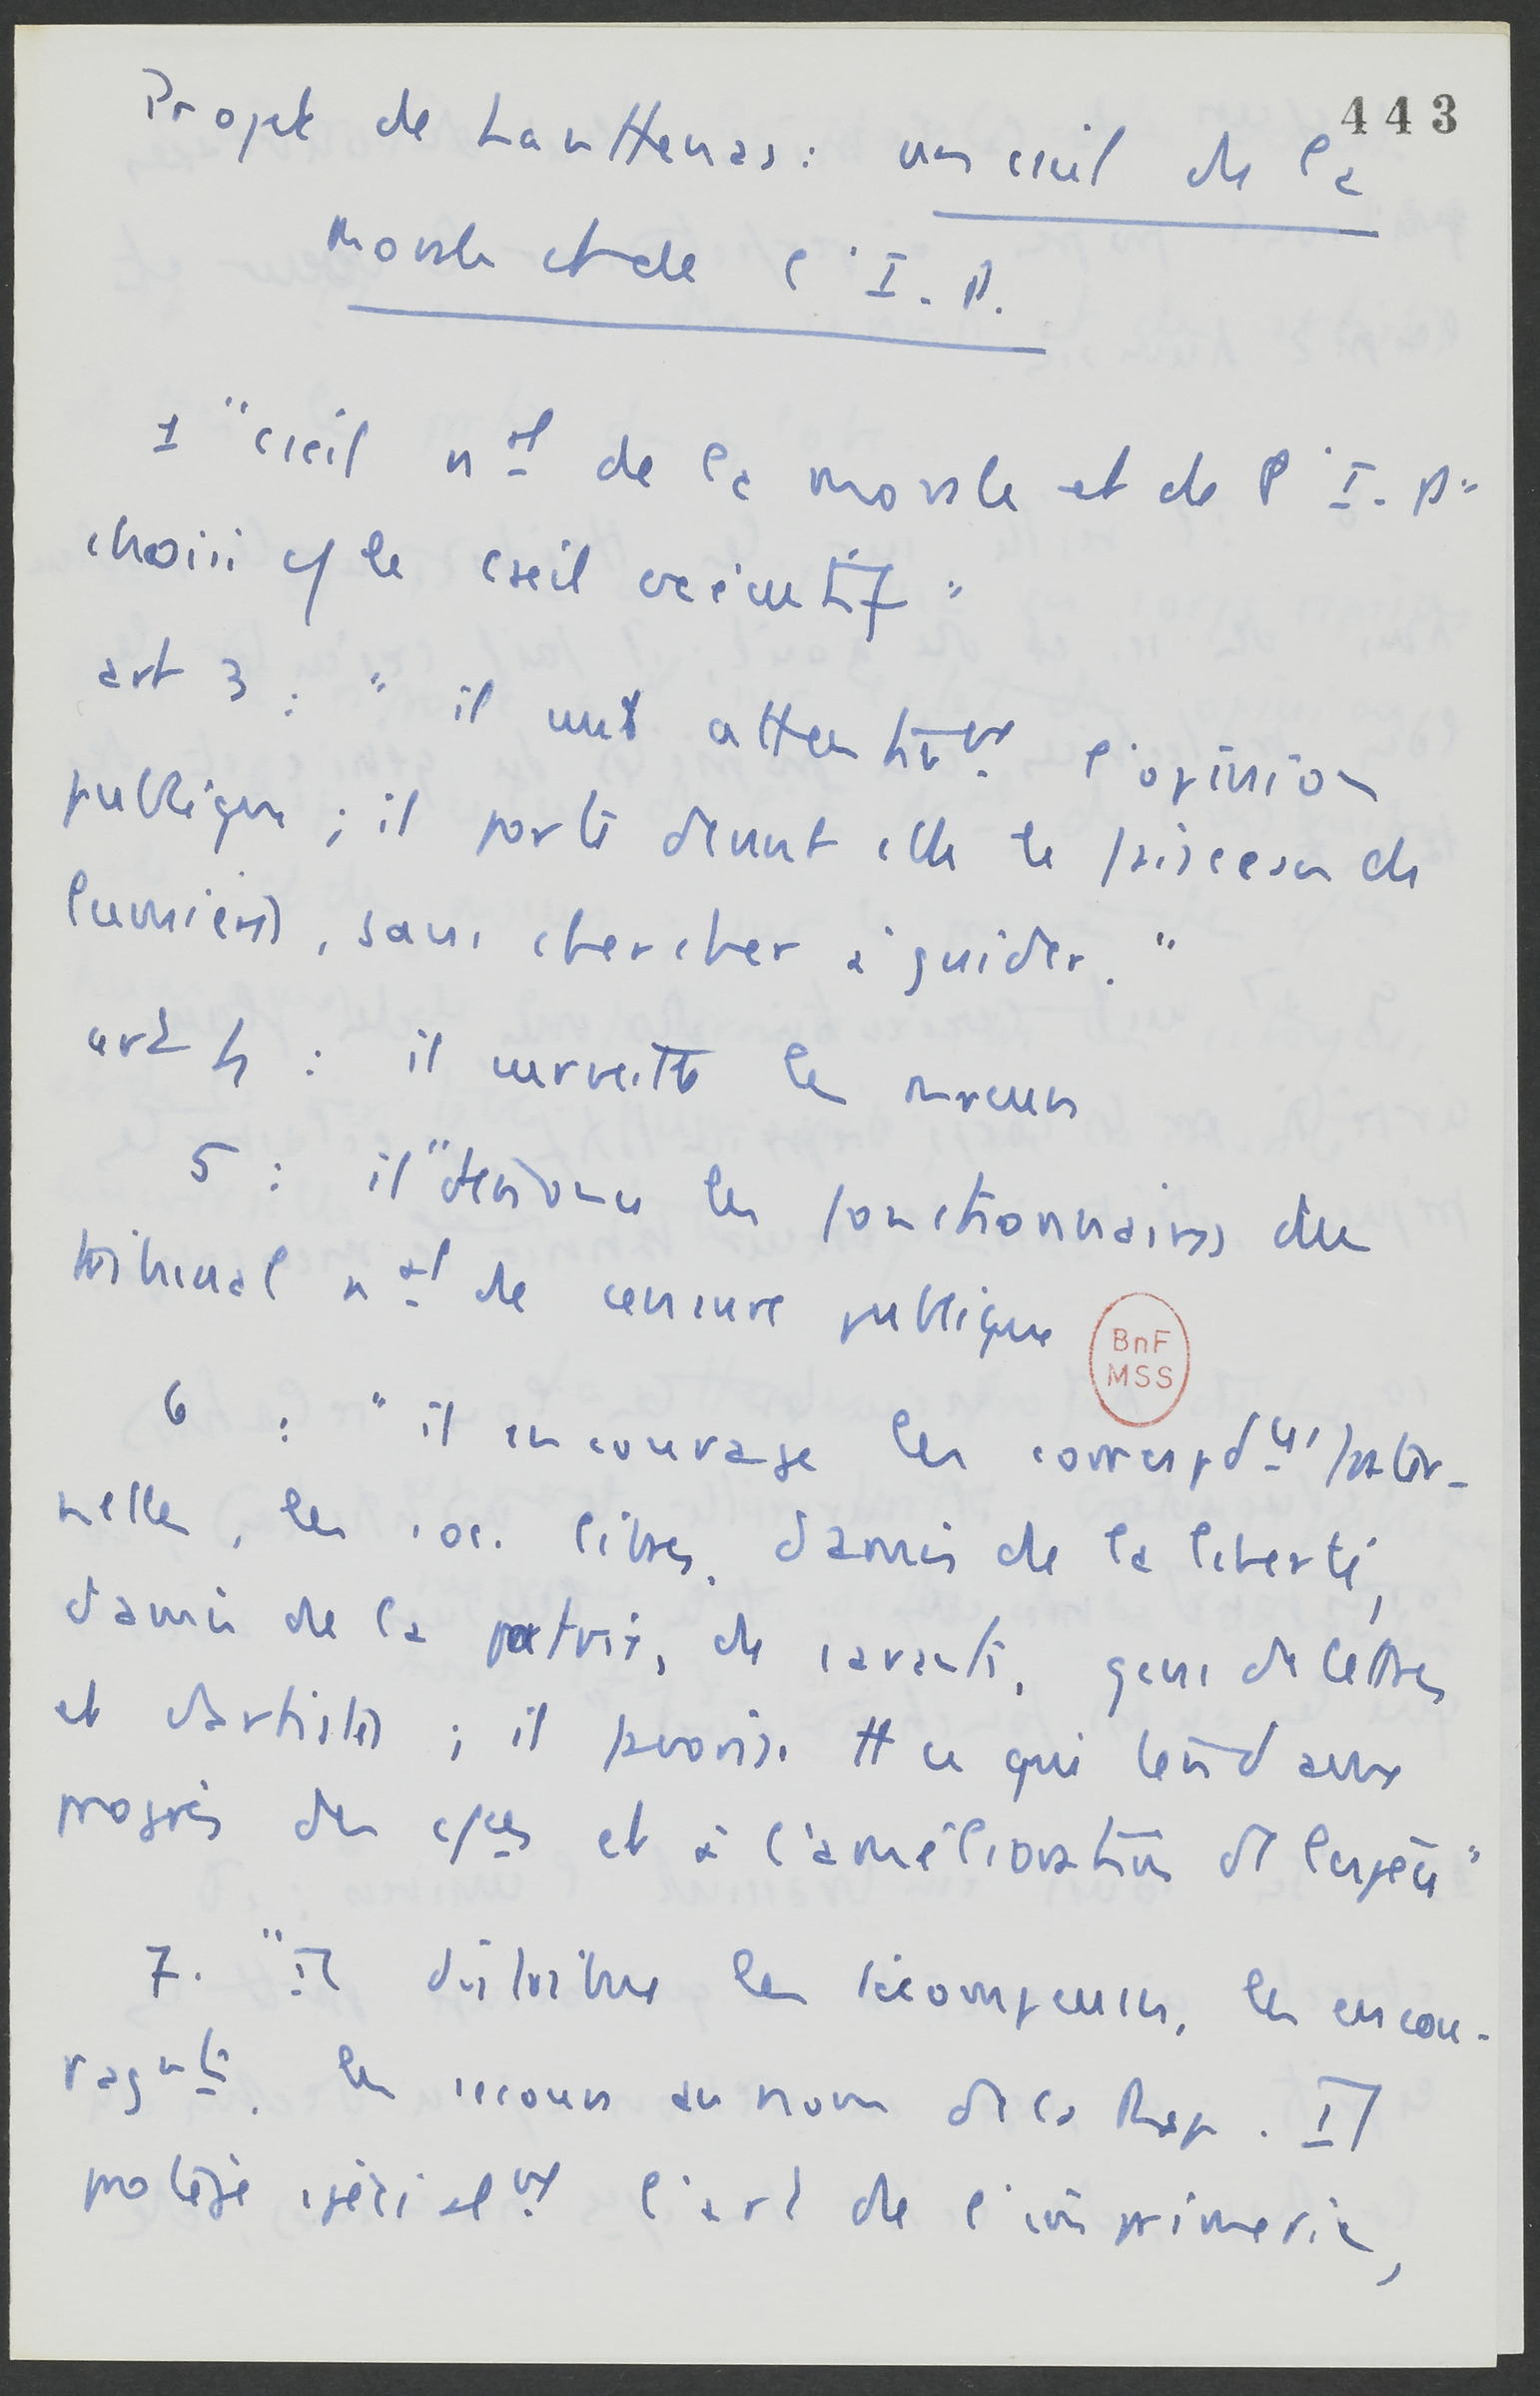 443
Projet de Lanthenas : un cseil de la
morale et de l'I.P.
1 "cseil nal de la morale et de l'I.P."
choisi p/ le cseil exécutif"
art 3 : " il suit attentivt l'opinion
publique ; il porte devant elle le faisceau de
lumières, sans chercher à guider."
art 4 : il surveille les moeurs
5 : il " les fonctionnaires du
tribunal nal de censure publique
BnF
MSS
6 : " il encourage les correspdces frater-
nelles, les soc. libres, d'amis de la liberté,
d'amis de la patrie, de savants, gens de lettres
et d'artistes ; il favorise tt ce qui tend aux
progrès des et à l'amélioration de l'espèce"
7. "Il distribue les récompenses, les encou-
ragnts, les secours au nom de la Rep. Il
protège spécialt l'art de l'imprimerie,